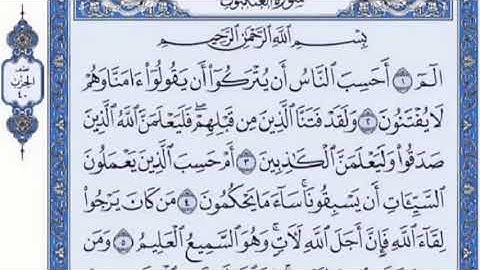 سورة العنكبوت
بِسْمِ اللَّهِ الرَّحْمَٰنِ الرَّحِيمِ
الٓمٓ ١ أَحَسِبَ النَّاسُ أَن يُتْرَكُوٓا۟ أَن يَقُولُوٓا۟ ءَامَنَّا وَهُمْ
لَا يُفْتَنُونَ ٢ وَلَقَدْ فَتَنَّا الَّذِينَ مِن قَبْلِهِمْ ۖ فَلَيَعْلَمَنَّ اللَّهُ الَّذِينَ
صَدَقُوا۟ وَلَيَعْلَمَنَّ الْكَٰذِبِينَ ٣ أَمْ حَسِبَ الَّذِينَ يَعْمَلُونَ
السَّيِّـَٔاتِ أَن يَسْبِقُونَا ۚ سَآءَ مَا يَحْكُمُونَ ٤ مَن كَانَ يَرْجُوا۟
لِقَآءَ اللَّهِ فَإِنَّ أَجَلَ اللَّهِ لَـَٔاتٍ ۚ وَهُوَ السَّمِيعُ الْعَلِيمُ ٥ وَمَن
نصف
الحزب
٤٠